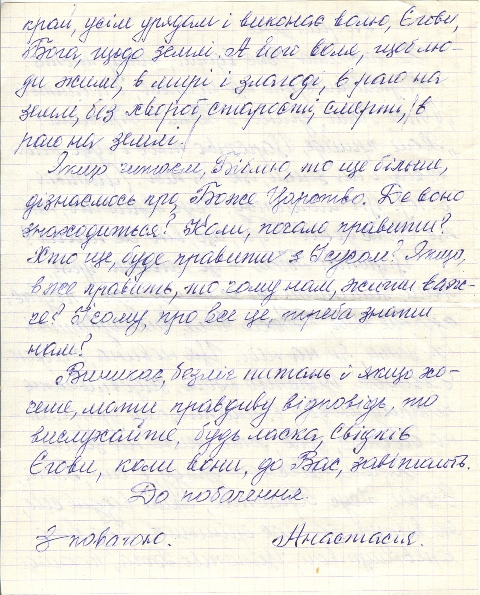 край, усім урядам і виконає волю, Єгови,
Бога, щодо землі. А його воля, щоб лю-
ди жили, в мирі і злагоді, в раю на
землі, без хвороб, старості, смерті, в
раю на землі.
Якщо читаєм, Біблію, то ще більше,
дізнаємось про, Боже Царство. Де воно
знаходиться? Коли, почало правити?
Хто ще, буде правити з Ісусом? Якщо,
вже править, то чому нам, жити важ-
че? І чому, про все це, треба знати
нам?
Виникає, безліч питань і якщо хо-
чете, мати правдиву відповідь, то
вислухайте, будь ласка, Свідків
Єгови, коли вони, до Вас, завітають.
До побачення.
З повагою. Анастасія.